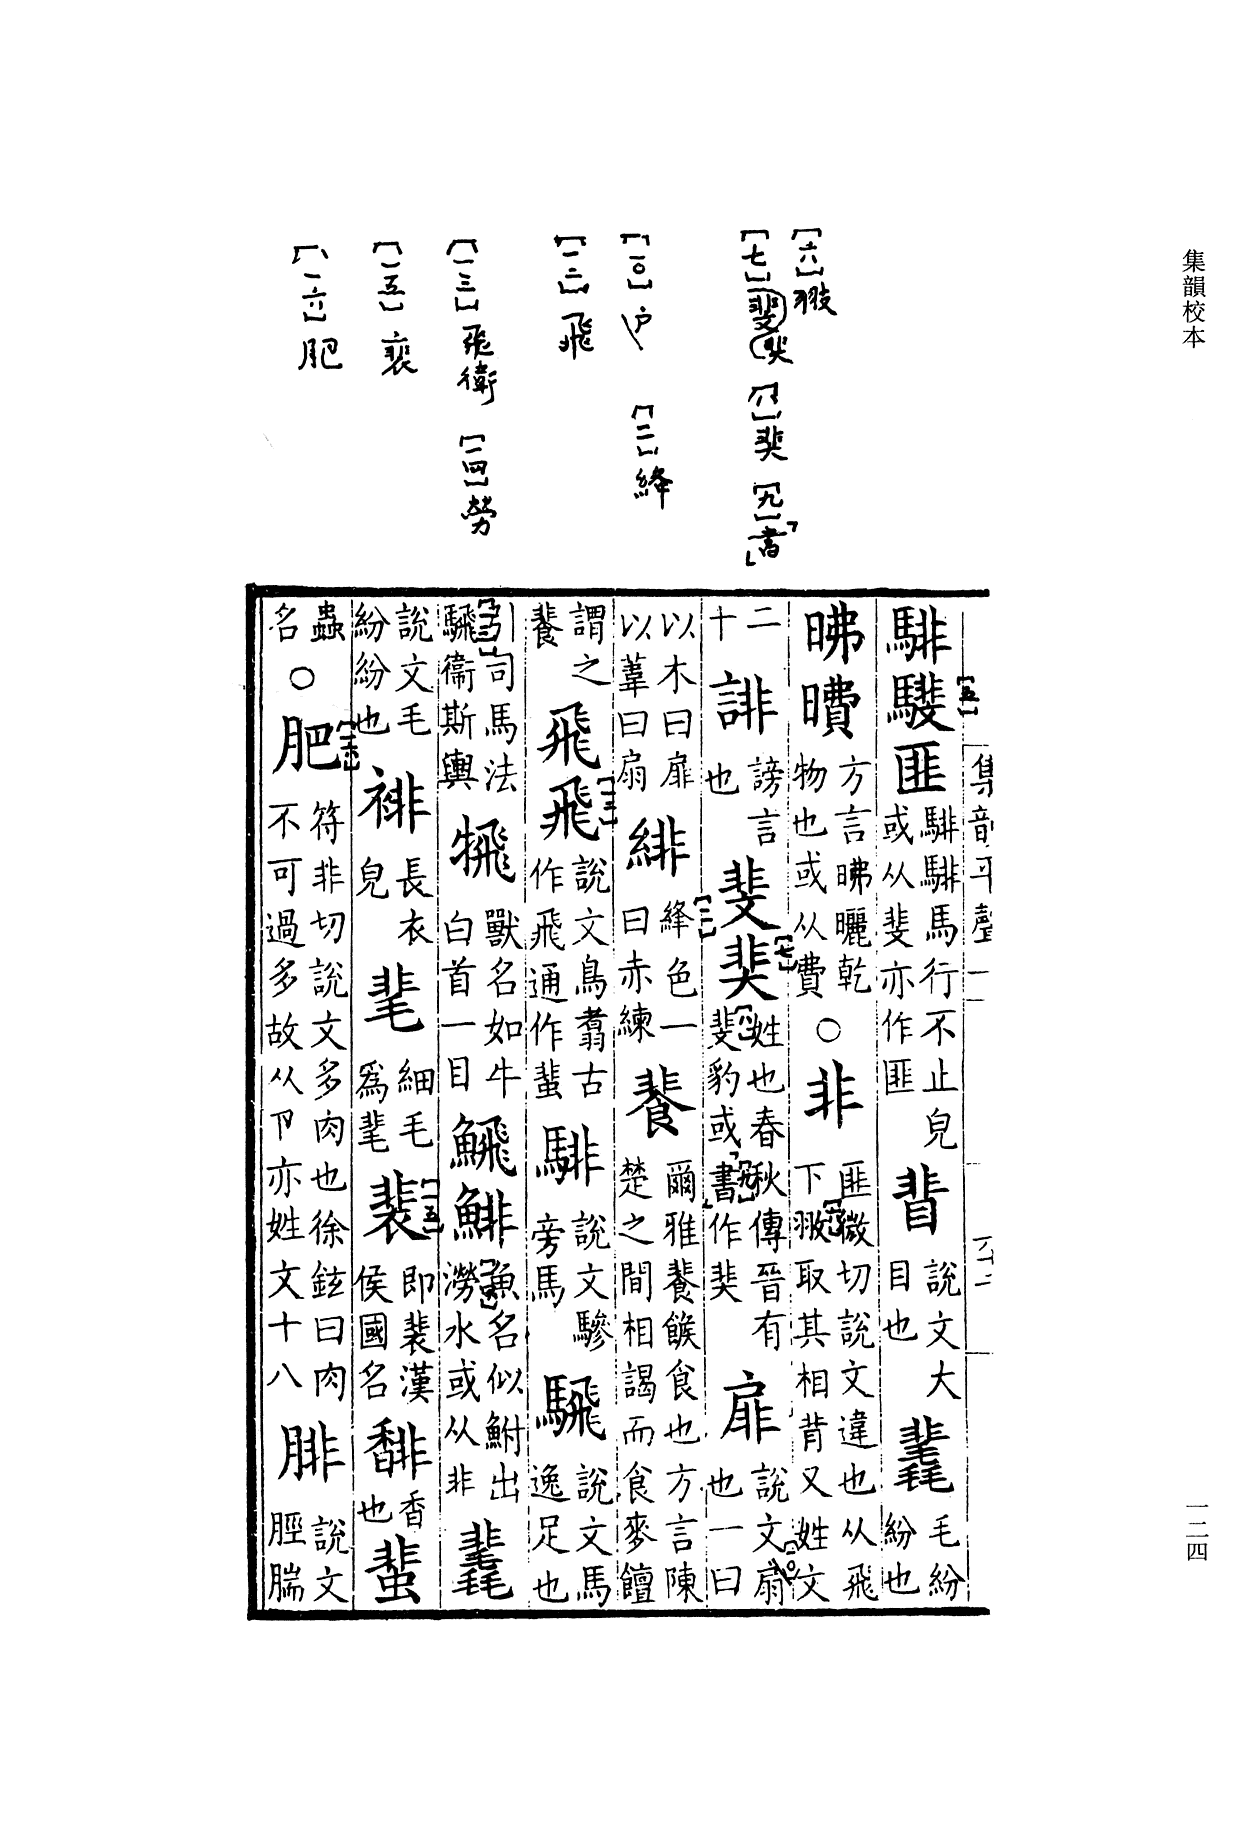 集韻校本
一二四
[六]翄
[七]斐㚍 [八]㚍 [九]書
[一〇]户 [一一]絳
[一二]飛
[一三]飛衛 [一四]勞
[一五]裵
[一六]肥
集韻平聲一
騑䮾匪騑騑馬行不止皃或从斐亦作匪䀟說文大目也毳毛紛紛也
昲曊方言昲曬乾物也或从費〇非匪微切說文違也从飛下翄取其相背又姓文
二十誹謗言也斐㚍姓也春秋傳晉有斐豹或書作㚍扉說文户扇也一曰
以木曰扉以葦曰扇緋絳色一曰赤練餥爾雅餥餱食也方言陳楚之間相謁而食麥饘
謂之餥飛飛說文鳥翥古作飛通作蜚騑說文驂旁馬䮾說文馬逸足也
司馬法䮾衛斯輿㹃獸名如牛白首一目鯡魚名似鮒出澇水或从非
說文毛紛紛也裶長衣皃㲍細毛爲㲍裴即裴漢侯國名馡香也蜚
蟲名〇肥符非切說文多肉也徐鉉曰肉不可過多故从卪亦姓文十八腓說文脛腨